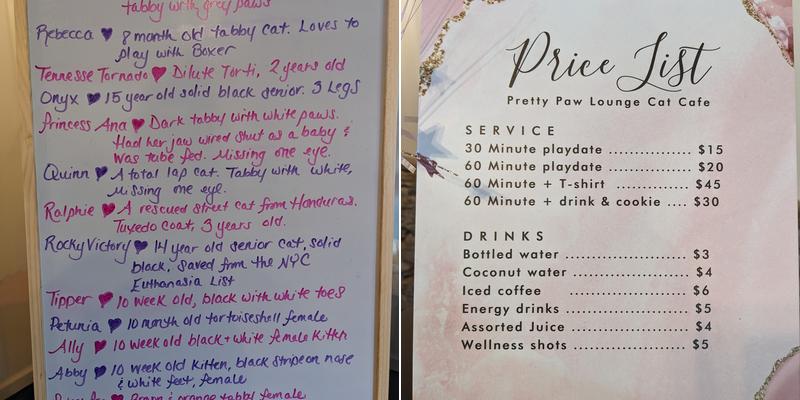 tabby with grey paws
Rebecca ♥ 8 month old tabby cat. Loves to
play with Boxer
Tennesse Tornado ♥ Dilute Torti, 2 years old
Onyx ♥ 15 year old solid black senior. 3 Legs
Princess Ana ♥ Dark tabby with white paws.
Had her jaw wired shut as a baby &
was tube fed. Missing one eye.
Quinn ♥ A total lap cat. Tabby with white,
Missing one eye.
Ralphie ♥ A rescued street cat from Honduras.
Tuxedo coat, 3 years old.
Rocky Victory ♥ 14 year old senior cat, solid
black, saved from the NYC
Euthanasia List
Tipper ♥ 10 week old, black with white toes
Petunia ♥ 10 month old tortoiseshell female
Ally ♥ 10 week old black + white female kitten
Abby ♥ 10 week old kitten, black stripe on nose
& white feet, female
& orange tabby female
Price List
Pretty Paw Lounge Cat Cafe
SERVICE
30 Minute playdate ................ $15
60 Minute playdate ................ $20
60 Minute + T-shirt ............. $45
60 Minute + drink & cookie .... $30
DRINKS
Bottled water ..................... $3
Coconut water .................... $4
Iced coffee ........................ $6
Energy drinks ..................... $5
Assorted Juice .................... $4
Wellness shots .................... $5